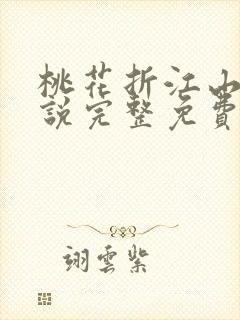 桃花折江山
說完整免費
翊雲紫